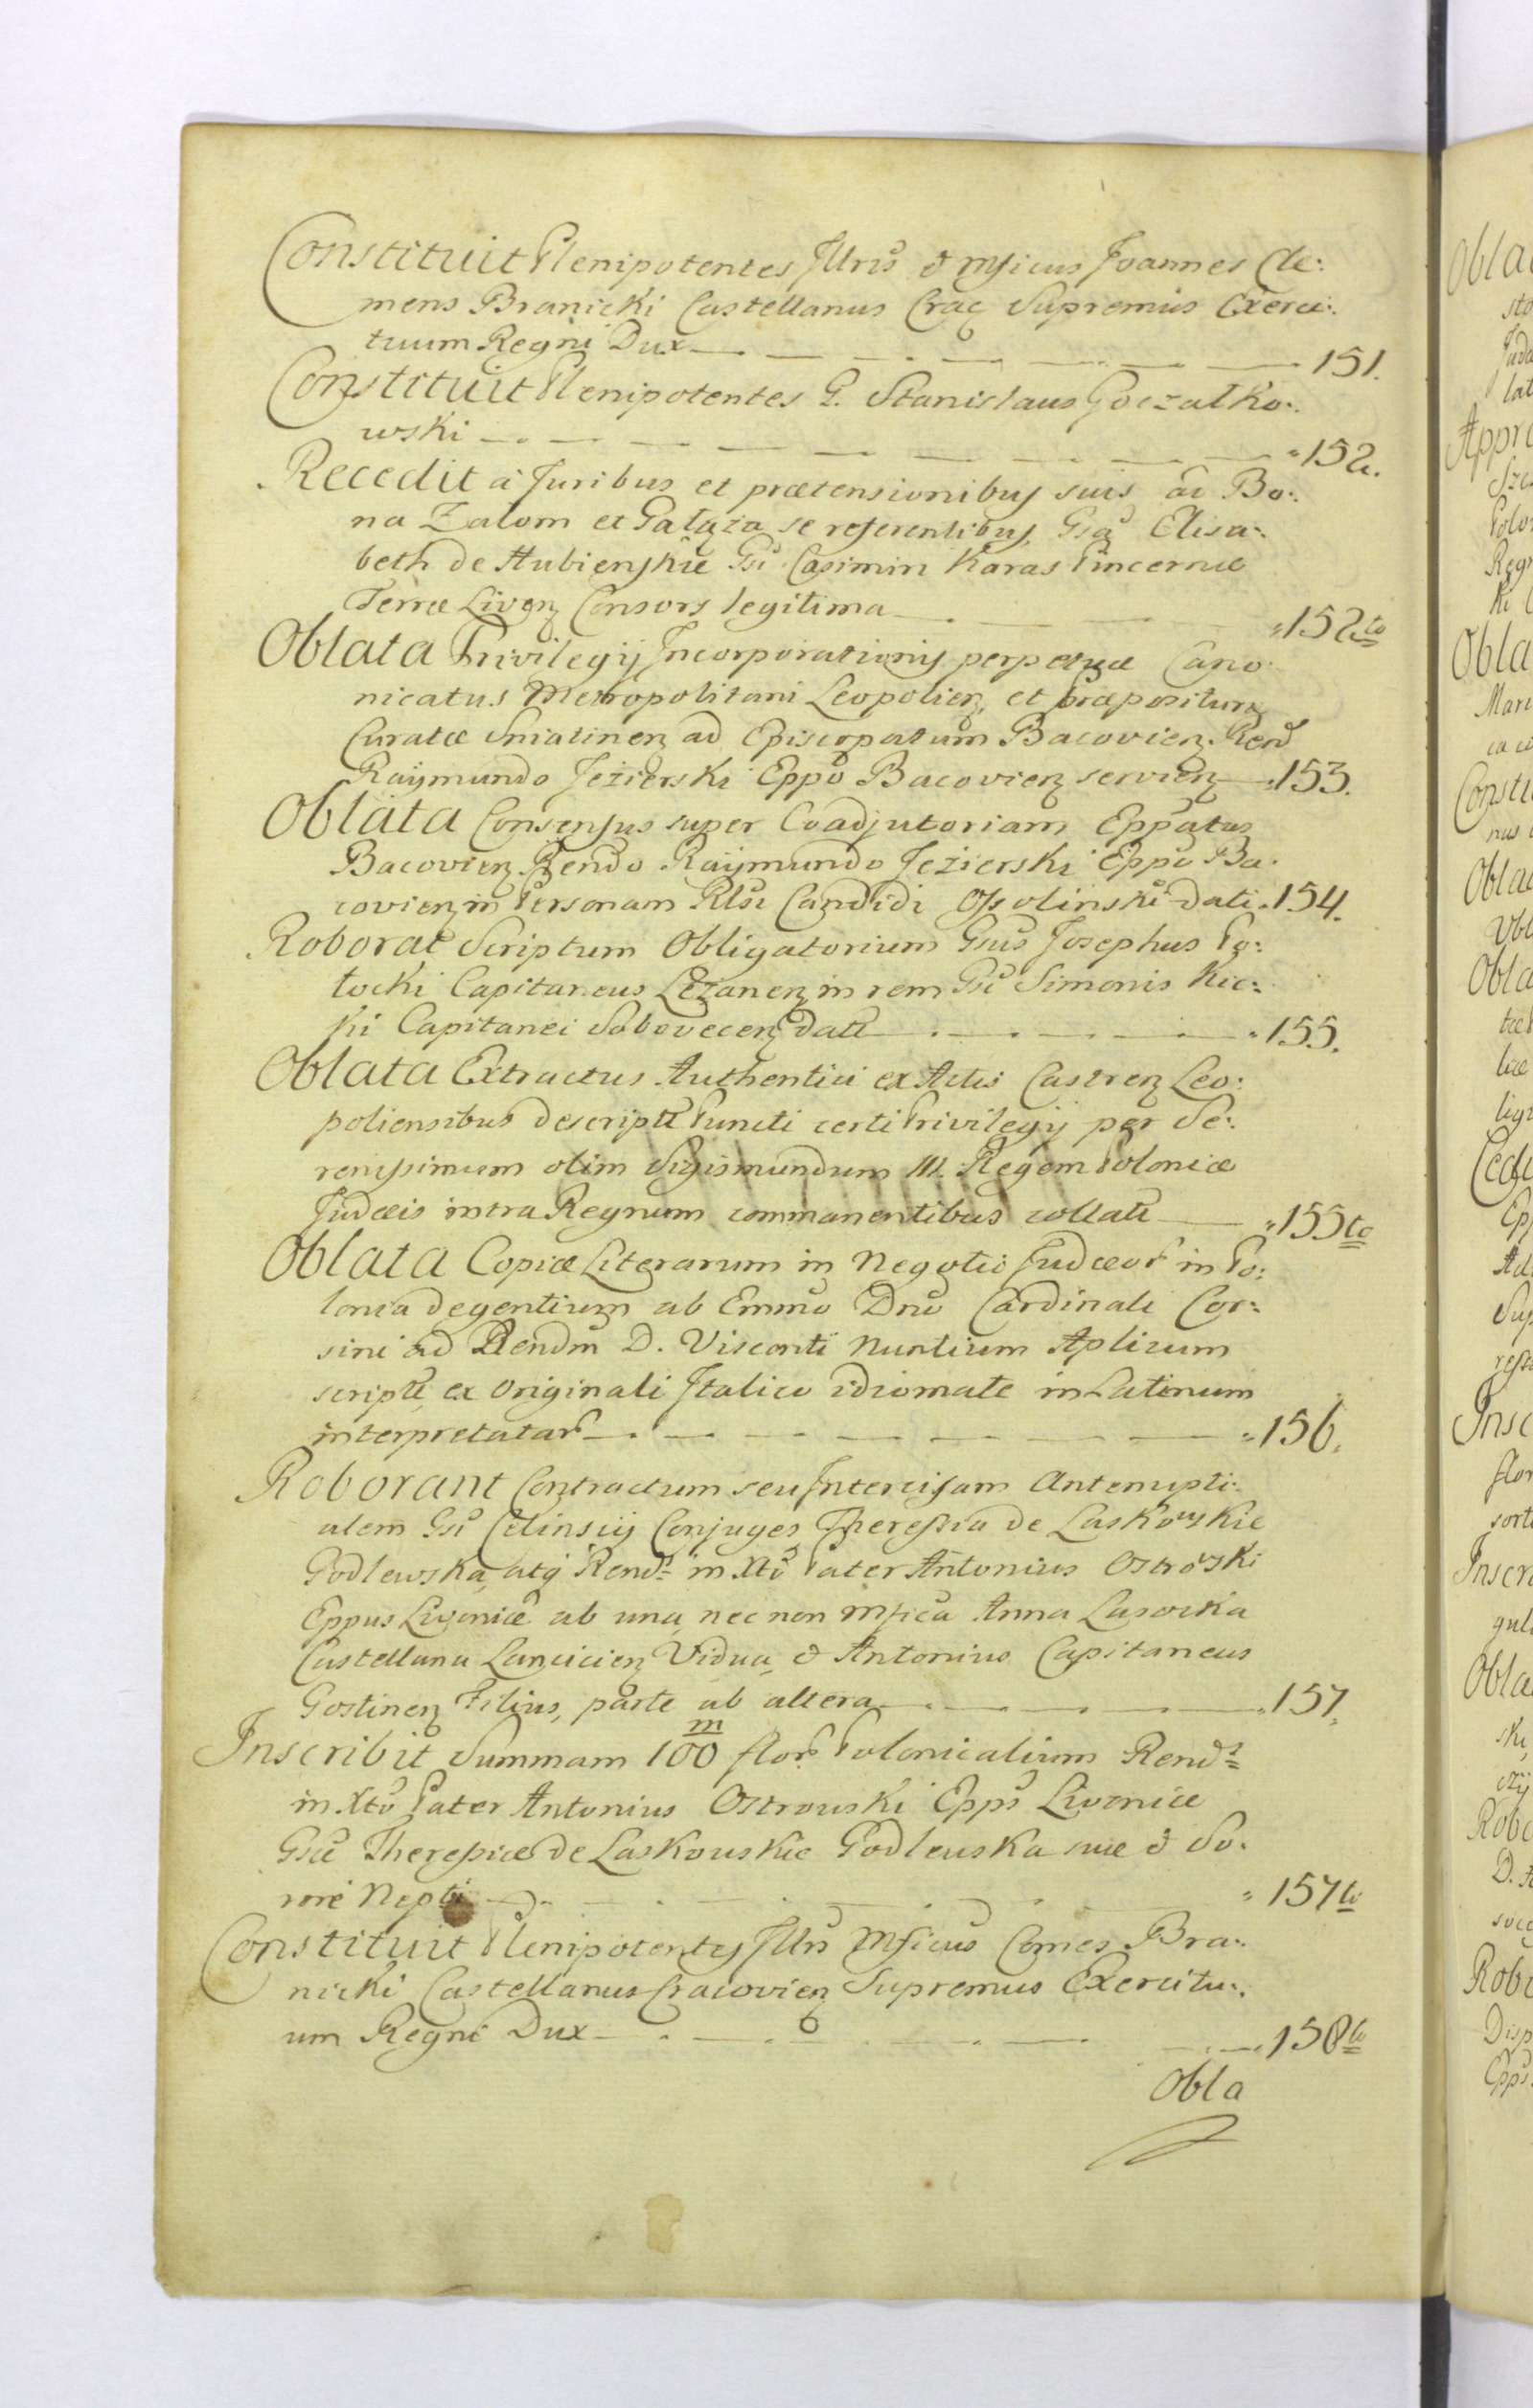 Constituit Plenipotentes Jllris & Mficus Joannes Cle:
mens Branicki Castellanus Crac Supremus Exerci:
tuum Regni Dux 151.
Constituit Plenipotentes G. Stanislaus Goczalko:
wski 152.
Recedit à Juribus et prætensionibus suis ad Bo:
na Zalom et Gałąza se referentibus, Gsa Elisa:
beth de Hubienskie Gsi Casimiri Karas Pincernæ
Terræ Livon Consors legitima 152to
Oblata Privilegij Incorporationis perpetuæ Cano:
nicatus Metropolitani Leopolien, et Præposituræ
Curatæ Sniatinen ad Episcopatum Bacovien. Rend
Raijmundo Jezierski Eppo Bacovien servien 153.
Oblata Consensus super Coadjutoriam Eppatus
Bacovien Rendo Raijmundo Jezierski Eppo Ba:
covien in Personam Rlsi Candidi Ossolinski dati 154.
Roborat Scriptum Obligatorium Gsus Josephus Po:
tocki Capitaneus Leżanen in rem Gsi Simonis Kic:
ki Capitanei Sobovecen dati 155.
Oblata Extractus Authentici ex Actis Castren Leo:
poliensibus descripti Puncti certi Privilegij per Se:
renissimum olim Sigismundum III. Regem Poloniæ
Judæis intra Regnum commanentibus collati 155to
Oblata Copiæ Literarum in Negotio Judæor in Po:
lonia degentium ab Emmo Dno Cardinali Cor:
sini ad Rendm D. Visconti Nuntium Aplicum
script, ex Originali Italico idiomate in Latinum
interpretatar 156.
Roborant Contractum seu Intercisam Antenupti:
alem Gsi Celinscij Conjuges, Theressia de Laskowskie
Godlewska, atq Rends in Xto Pater Antonius Ostroski
Eppus Livoniæ ab una, nec non Mfica Anna Lasocka
Castellana Lancicien Vidua, & Antonius Capitaneus
Gostinen Filius, parte ab altera 157.
Inscribit Summam 100 m flor Polonicalium Rends
in Xto Pater Antonius Ostrowski Epps Livoniæ
Gsæ Theressiæ de Laskouskie Godleuska suæ & So:
rore Nepti 157to
Constituit Plenipotentes Jllris Mficus Comes Bra:
nicki Castellanus Cracovien Supremus Exercitu:
um Regni Dux 158to
Obla
Obla
Appro
Obla
Consti
Obla
Obla
Cedi
Insc
Inscri
Obla
Robo
Robo